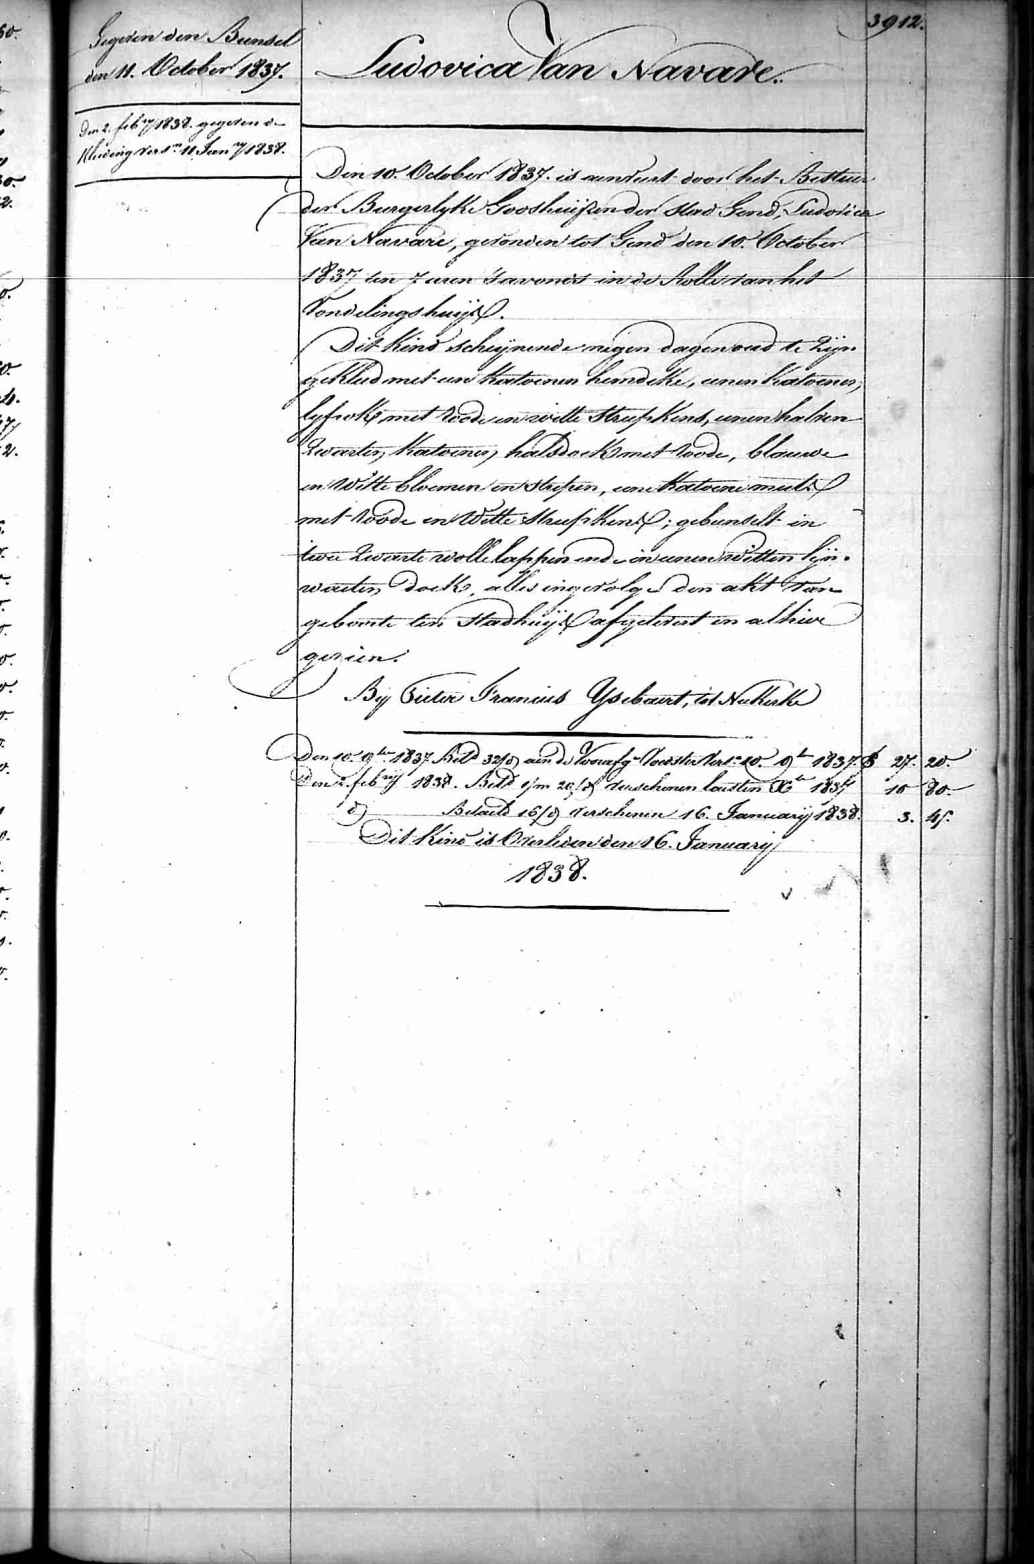 3912.
Gegeven den Bunsel
den 11. October 1837.
Den 2. feb.ry 1838. gegeven de
Kleeding vers.n 11 Jan.ry 1838.
Ludovica Van Navare.
Den 10. October 1837. is aenveert door het Bestuer
der Burgerlyke Godshuijzen der stad Gend, Ludovica
Van Navare, gevonden tot Gend den 10. October
1837 ten 7 uren 's avonds in de Rolle van het
Vondelingshuijs.
Dit Kind schijnende negen dagen oud te zijn
gekleed met een Katoenen hemdeke, eenen Katoenen
lyfrok met roode en witte streepkens, eenen halven
Zwarten Katoenen halsdoek met roode, blauwe
en witte bloemen en strepen, eene Katoene muts
met roode en witte streepkens; gebunselt in
twee Zwarte wolle lappen ende in eenen witten lijn-
waeten doek, alles ingevolge den akt van
geboorte ten Stadhuijs afgelevert en alhier
gezien.
Bij Pieter Francies Ysebaert, tot Nukerke
Den 10. 9.ber 1837 Bet.d 32/d aen de Voorafg. Voedster vers. 10. 9.br 1837. f 27. 20.
Den 2. feb.ry 1838. Bet.d 1/m 20/d verschenen laesten X.br 1837 10 80.
d.o Betaeld 16/d verschenen 16. January 1838. 3. 45.
Dit Kind is Overleden den 16. January
1838.